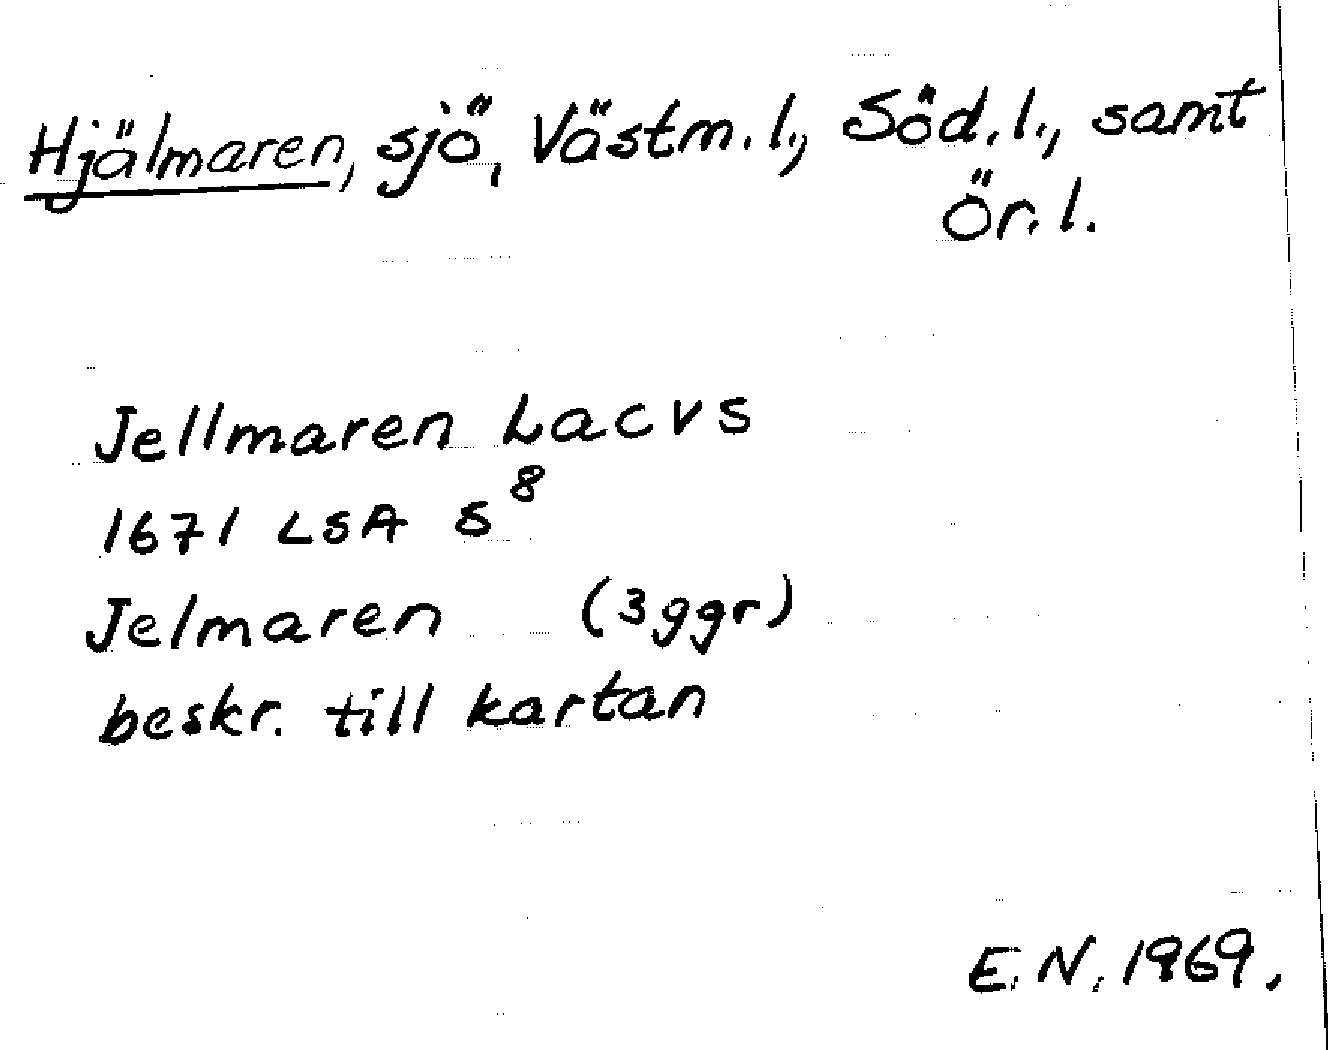 Hjälmaren, sjö, Västm. l., Söd. l., samt
Ör. l.
Jellmaren Lacvs
1671 LSA S⁸
Jelmaren (3 ggr)
beskr. till kartan
E. N. 1969.